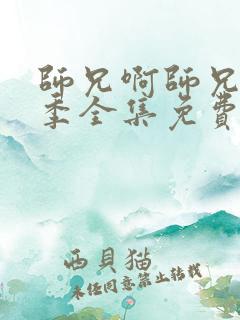 師兄啊師兄
季全集免費
西貝猫
未经同意禁止转载